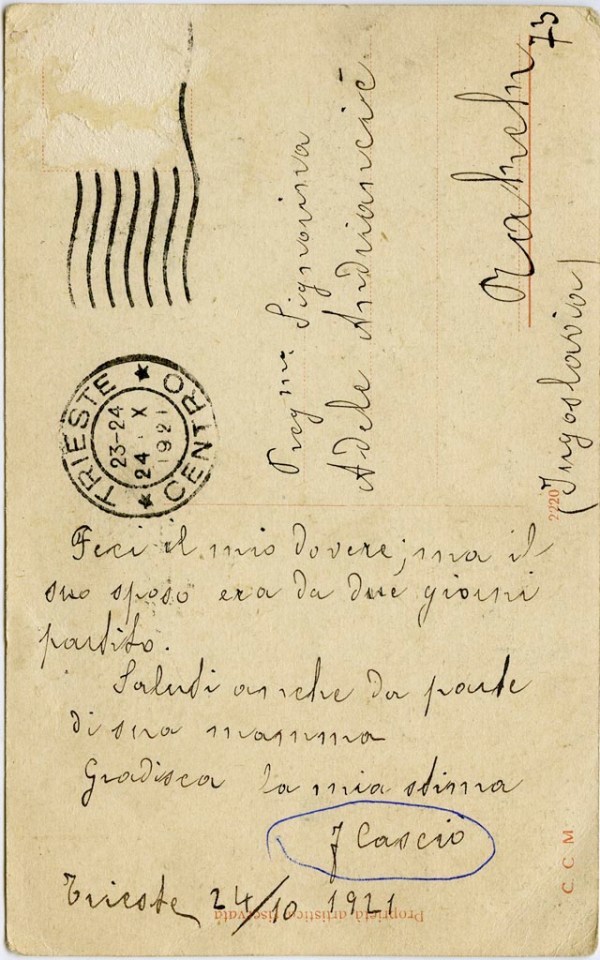 TRIESTE CENTRO
23-24
24 · X
1921
Preg.ma Signorina
Adele Andriancič
73
(Jugoslavia)
2220
Feci il mio dovere; ma il
suo sposo era da due giorni
partito.
Saluti anche da parte
di sua mamma
Gradisca la mia stima
J Cascio
Trieste 24/10 1921
Proprietà artistica riservata
C C M